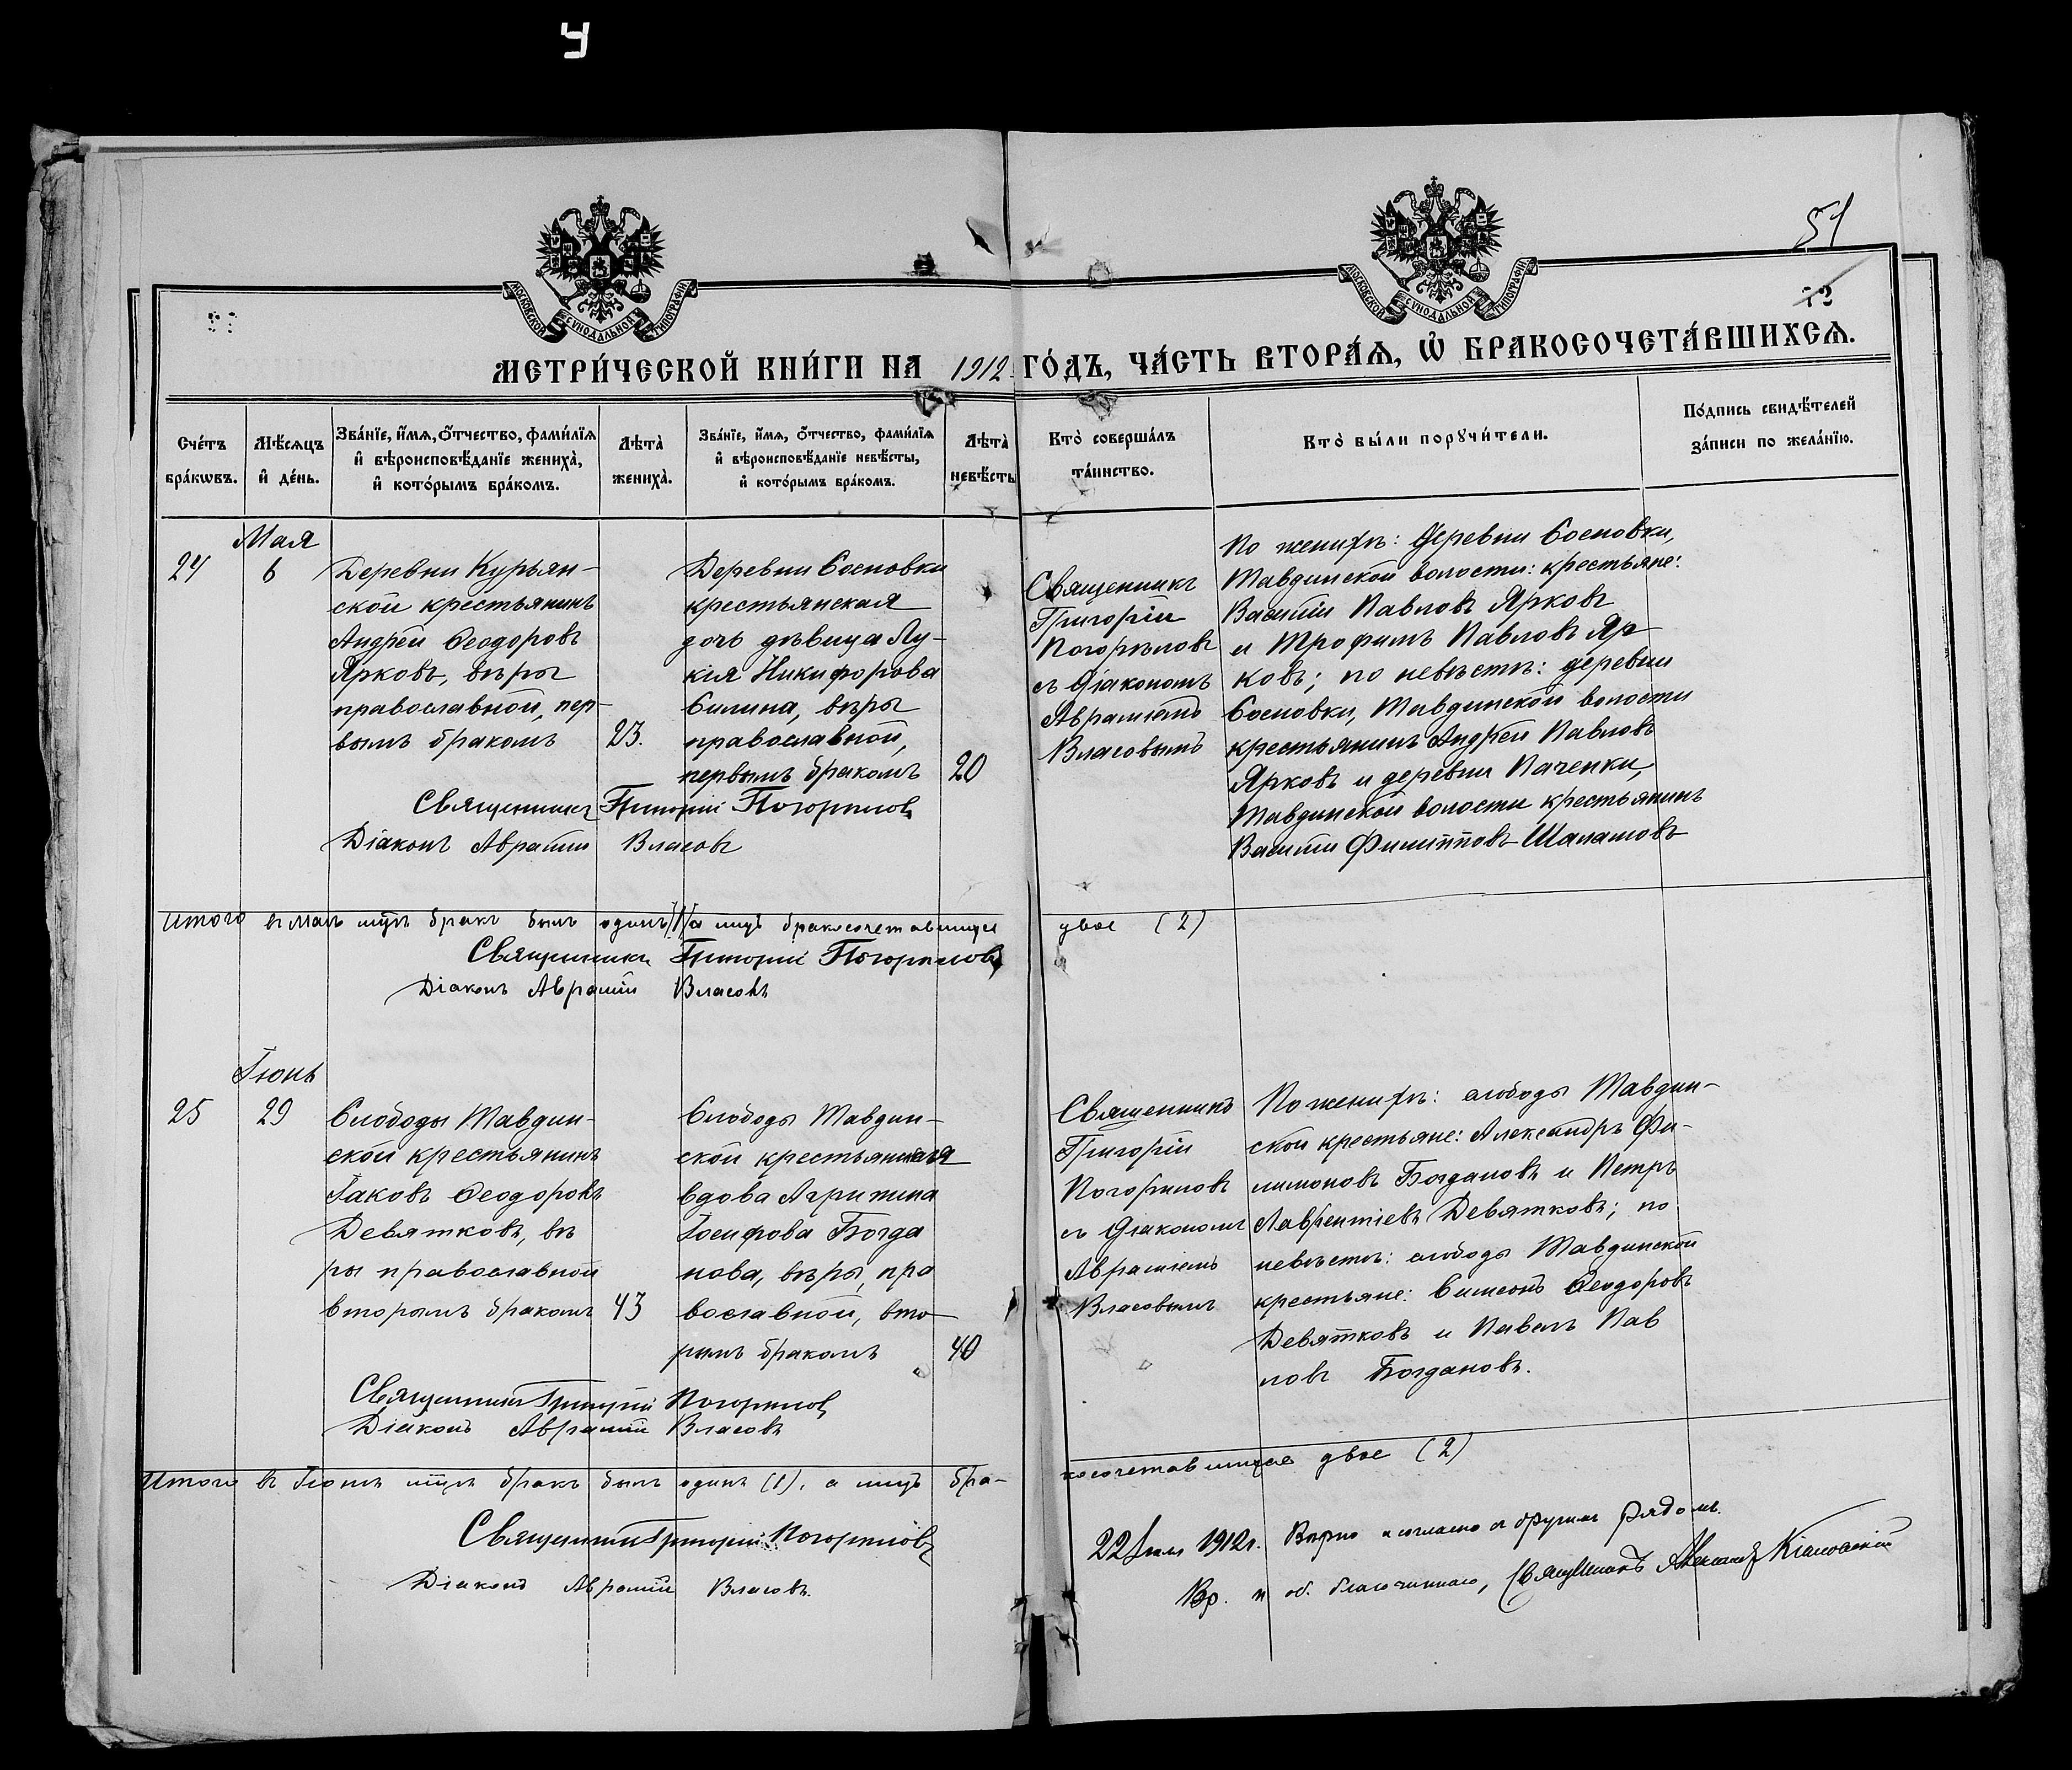 У
51
МОСКОВСКОЙ СУНОДАЛЬНОЙ ТИПОГРАФІИ
МОСКОВСКОЙ СУНОДАЛЬНОЙ ТИПОГРАФІИ
МЕТРИ́ЧЕСКОЙ КНИ́ГИ НА 1912 ГО́ДЪ, ЧА́СТЬ ВТОРА́Ѧ, Ѽ БРАКОСОЧЕТА́ВШИХСѦ.
Сче́тъ
бра́кѡвъ.
Мѣ́сѧцъ
и҆ де́нь.
Зва́нїе, и҆́мѧ, ѻ҆́тчество, фами́лїѧ
и҆ вѣроисповѣ́данїе жениха̀,
и҆ кото́рымъ бра́комъ.
Лѣ́та̀
жениха̀.
Зва́нїе, и҆́мѧ, ѻ҆́тчество, фами́лїѧ
и҆ вѣроисповѣ́данїе невѣ́сты,
и҆ кото́рымъ бра́комъ.
Лѣ́та̀
невѣ́сты
Кто̀ соверша́лъ
та́инство.
Кто̀ бы́ли порꙋчи́тели.
По́дпись свидѣ́телей
за́писи по жела́нїю.
Мая
24
6
Деревни Курьян-
ской крестьянинъ
Андрей Ѳеодоровъ
Ярковъ, вѣры
православной, пер-
вымъ бракомъ
23.
Деревни Сосновки
крестьянская
дочь дѣвица Лу-
кія Никифорова
Силина, вѣры
православной,
первымъ бракомъ
20
Священникъ
Григорій
Погорѣловъ
съ Діакономъ
Авраміемъ
Власовымъ
По женихѣ: Деревни Сосновки,
Тавдинской волости: крестьяне:
Василій Павловъ Ярковъ
и Трофимъ Павловъ Яр-
ковъ; по невѣстѣ: деревни
Сосновки, Тавдинской волости
крестьянинъ Андрей Павловъ
Ярковъ и деревни Паченки,
Тавдинской волости крестьянинъ
Василій Филипповъ Шаламовъ
Священникъ Григорій Погорѣловъ
Діаконъ Аврамій Власовъ
Итого въ маѣ м̃цѣ бракъ былъ одинъ (1) а лицъ бракосочетавшихся двое (2)
Священникъ Григорій Погорѣловъ
Діаконъ Аврамій Власовъ
Іюнь
25
29
Слободы Тавдин-
ской крестьянинъ
Іаковъ Ѳеодоровъ
Девятковъ, вѣ
ры православной
вторымъ бракомъ
43
Слободы Тавдин-
ской крестьянская
вдова Агрипина
Іосифова Богда
нова, вѣры, пра
вославной, вто-
рымъ бракомъ
40
Священникъ
Григорій
Погорѣловъ
съ Діакономъ
Авраміемъ
Власовымъ
По женихѣ: слободы Тавдин-
ской крестьяне: Александръ Фи-
лимоновъ Богдановъ и Петръ
Лаврентіевъ Девятковъ; по
невѣстѣ: слободы Тавдинской
крестьяне: Симеонъ Ѳеодоровъ
Девятковъ и Павелъ Пав
ловъ Богдановъ.
Священникъ Григорій Погорѣловъ
Діаконъ Аврамій Власовъ
Итого въ Іюнѣ м̃цѣ бракъ былъ одинъ (1), а лицъ бра-
косочетавшихся двое (2)
Священникъ Григорій Погорѣловъ
Діаконъ Аврамій Власовъ.
22 Іюля 1912 г. Вѣрно и согласно съ другимъ рядомъ.
Вр. и об. благочиннаго, Священникъ Александръ